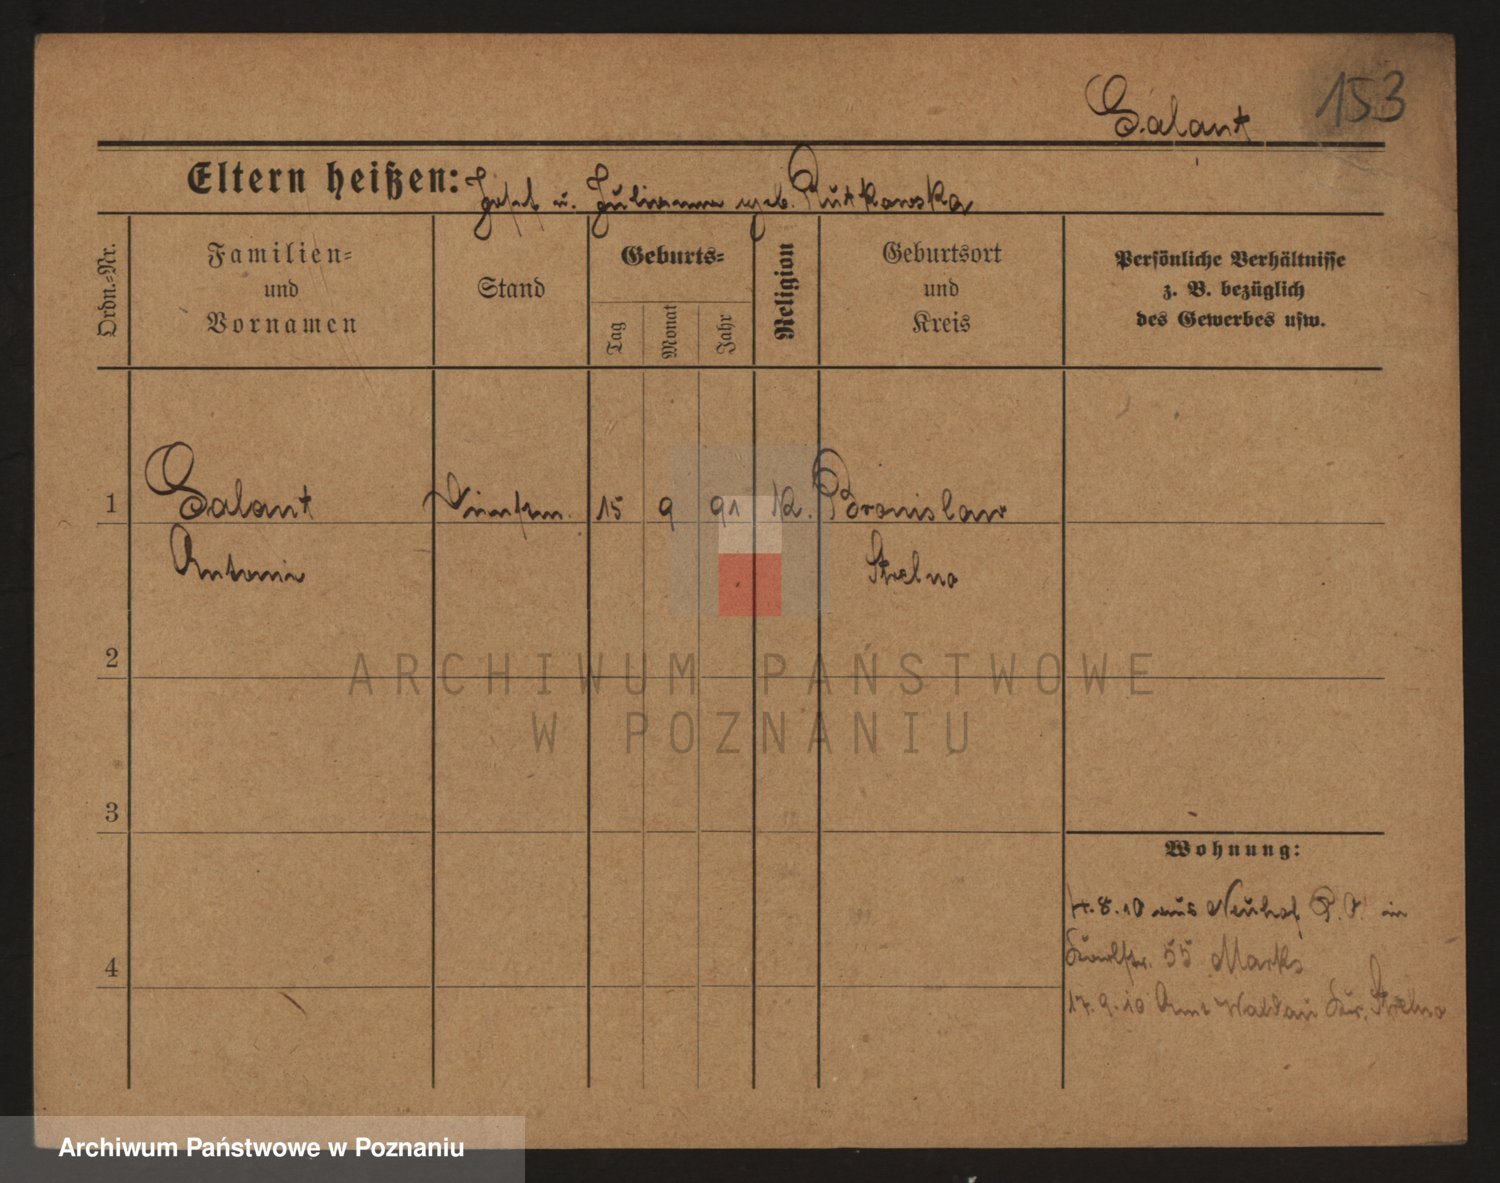 153
Galant
Eltern heißen: Josef u. Julianna geb. Rutkowska
Ordn.-Nr.
Familien=
und
Vornamen
Stand
Geburts=
Tag
Monat
Jahr
Religion
Geburtsort
und
Kreis
Persönliche Verhältnisse
z. B. bezüglich
des Gewerbes usw.
1
Galant
15 9 91 K. Bronislaw
Antonie
Strelno
2
3
4
Wohnung:
4.8.10 aus Neuhof P. O. in
55 Marks
17.9.10 Waldau Kr. Strelno
ARCHIWUM PAŃSTWOWE
W POZNANIU
Archiwum Państwowe w Poznaniu